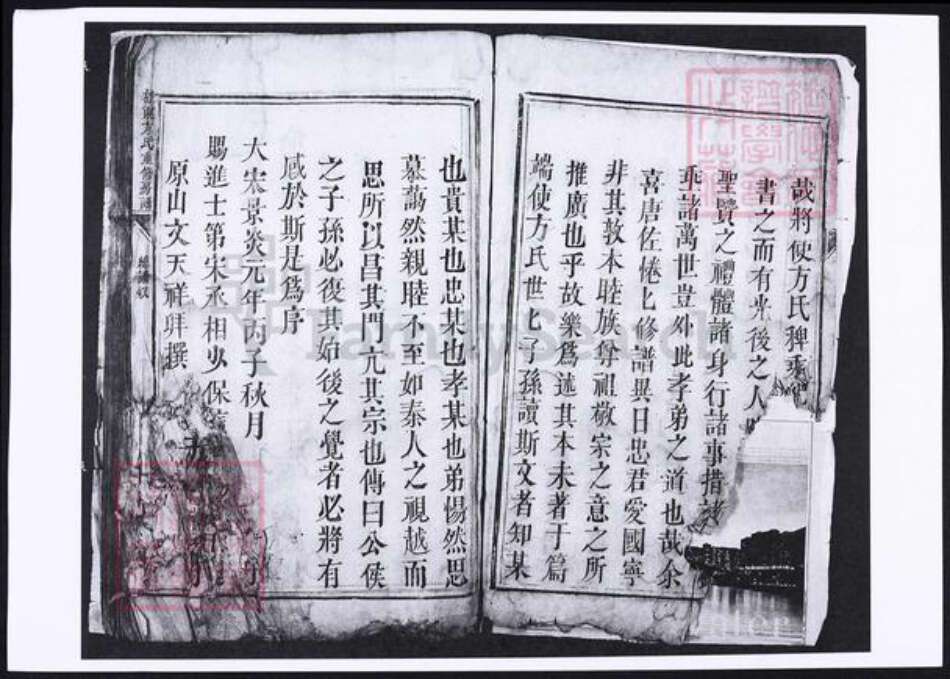 哉將使方氏稗乘
書之而有光後之人
聖賢之禮體諸身行諸事措諸
乖諸萬世豈外此孝弟之道也哉余
喜唐佐惓匕修譜異日忠君愛國寧
非其敦本睦族尊祖敬宗之意之所
推廣也乎故樂為述其本末著于篇
端使方氏世匕子孫讀斯文者知某
也貴某也忠某也孝某也弟惕然思
慕藹然親睦不至如秦人之視越而
思所以昌其門亢其宗也傳曰公侯
之子孫必復其始後之覺者必將有
感於斯是為序
大宋景炎元年丙子秋月
賜進士第宋丞相少保
原山文天祥拜撰